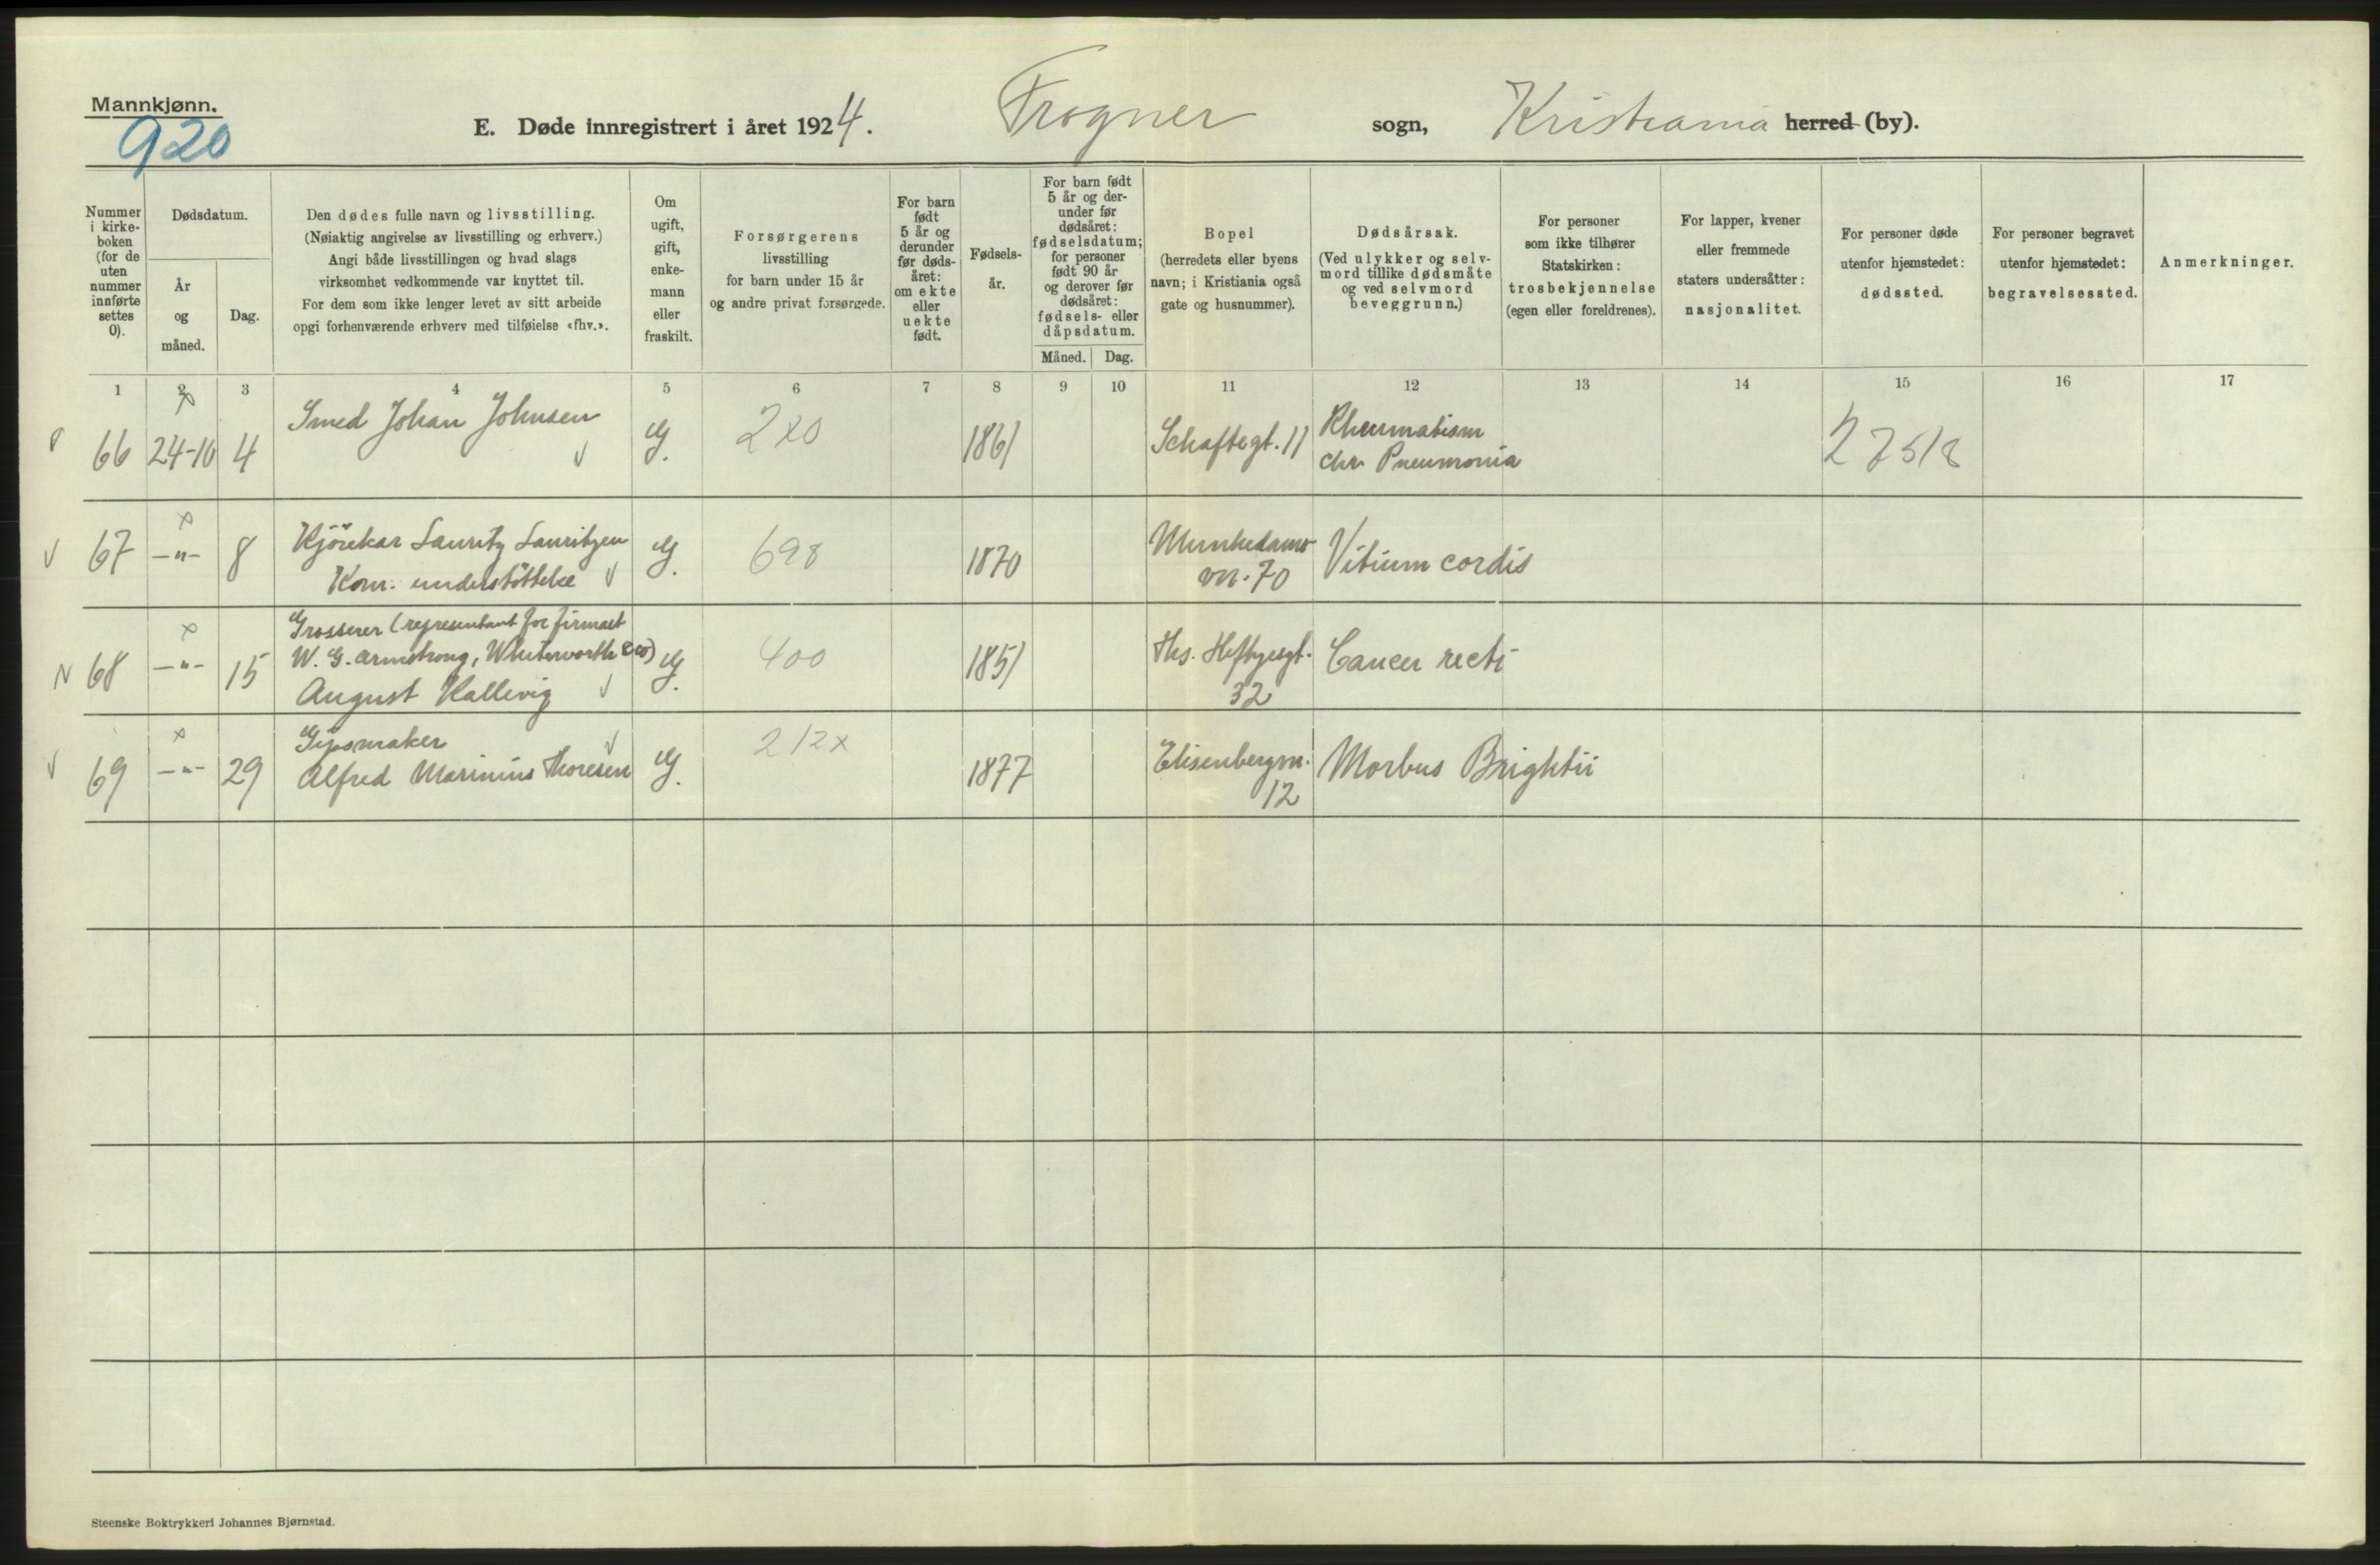 Mannkjønn.
920
E. Døde innregistrert i året 1924. Frogner sogn, Kristiania herred (by).
Nummer i kirke-boken (for de uten nummer innførte settes 0).
Dødsdatum.
År og måned.
Dag.
Den dødes fulle navn og livsstilling.
(Nøiaktig angivelse av livsstilling og erhverv.)
Angi både livsstillingen og hvad slags
virksomhet vedkommende var knyttet til.
For dem som ikke lenger levet av sitt arbeide
opgi forhenværende erhverv med tilføielse «fhv.».
Om ugift, gift, enke-mann eller fraskilt.
Forsørgerens
livsstilling
for barn under 15 år
og andre privat forsørgede.
For barn født 5 år og derunder før døds-året: om ekte eller uekte født.
Fødsels-år.
For barn født 5 år og der-under før dødsåret: fødselsdatum; for personer født 90 år og derover før dødsåret: fødsels- eller dåpsdatum.
Måned. Dag.
Bopel
(herredets eller byens
navn; i Kristiania også
gate og husnummer).
Dødsårsak.
(Ved ulykker og selv-
mord tillike dødsmåte
og ved selvmord
beveggrunn.)
For personer
som ikke tilhører
Statskirken:
trosbekjennelse
(egen eller foreldrenes).
For lapper, kvener
eller fremmede
staters undersåtter:
nasjonalitet.
For personer døde
utenfor hjemstedet:
dødssted.
For personer begravet
utenfor hjemstedet:
begravelsessted.
Anmerkninger.
1 2 3 4 5 6 7 8 9 10 11 12 13 14 15 16 17
66 24-10 4 Smed Johan Johnsen G. 2x0 1861 Schaftegt. 11 Rheumatism
chr. Pneumonia
67 -"- 8 Kjörekar Lauritz Lauritzen G. 698 1870 Munkedams Vitium cordis
Kom. understöttelse vn. 70
Grosserer (representant for firmaet
68 -"- 15 W. G. Armstrong, Whitworth & Co) G. 400 1851 Ths. Heftyesgt. Cancer recti
August Kallevig 32
Gipsmaker 212x
69 -"- 29 Alfred Marinius Thoresen G. 1877 Elisenbergvn. Morbus Brightii
12
Steenske Boktrykkeri Johannes Bjørnstad.